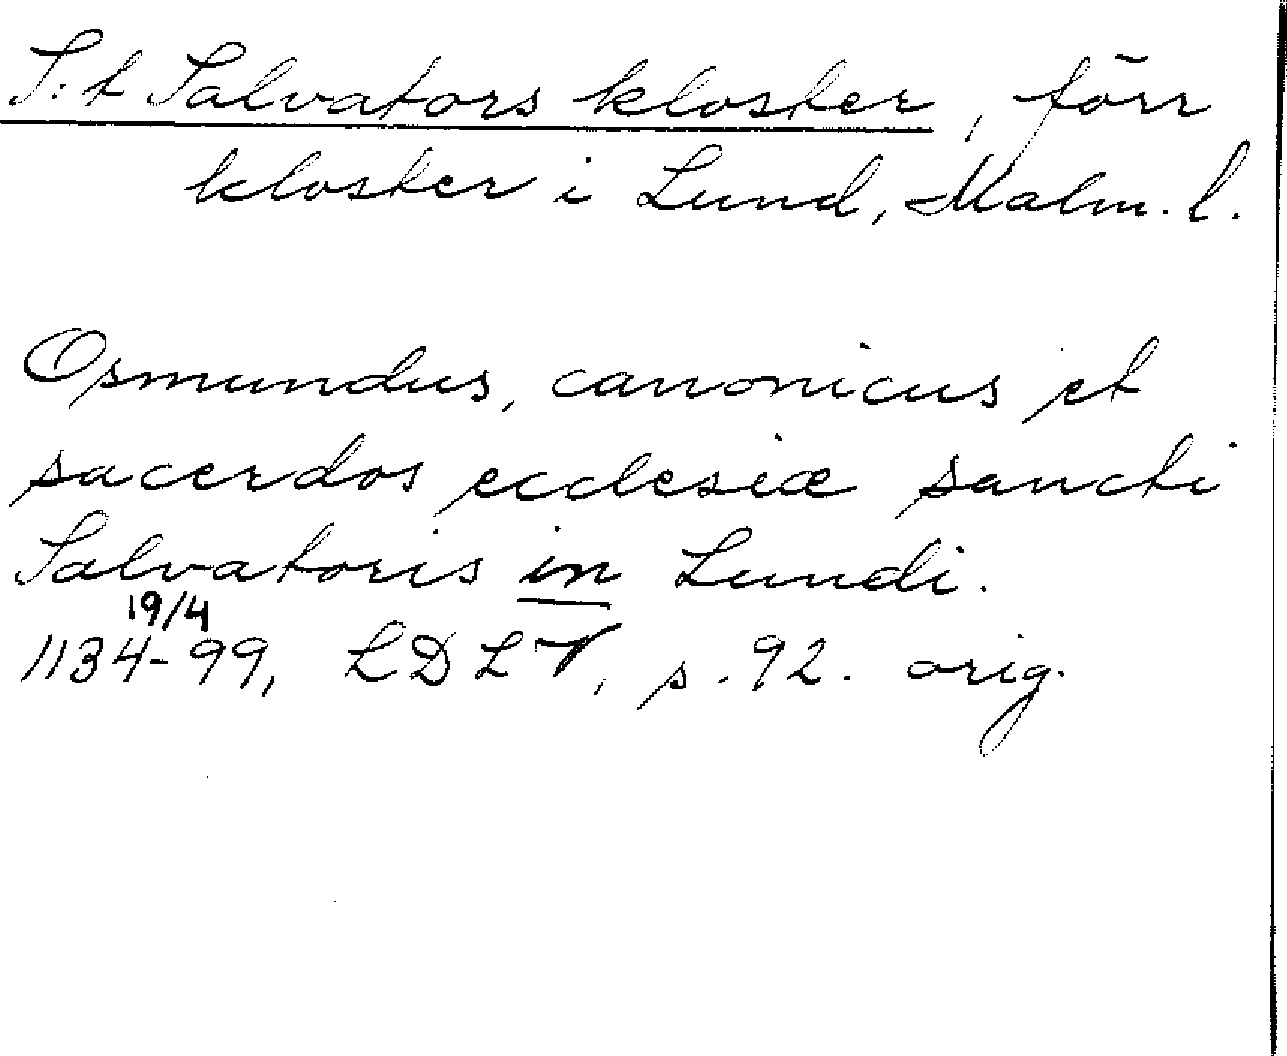 S:t Salvators kloster, förr
kloster i Lund, Malm. l.
Osmundus, canonicus et
sacerdos ecclesiæ sancti
Salvatoris in Lundi.
19/4
1134-99, LDLV, s. 92. orig.